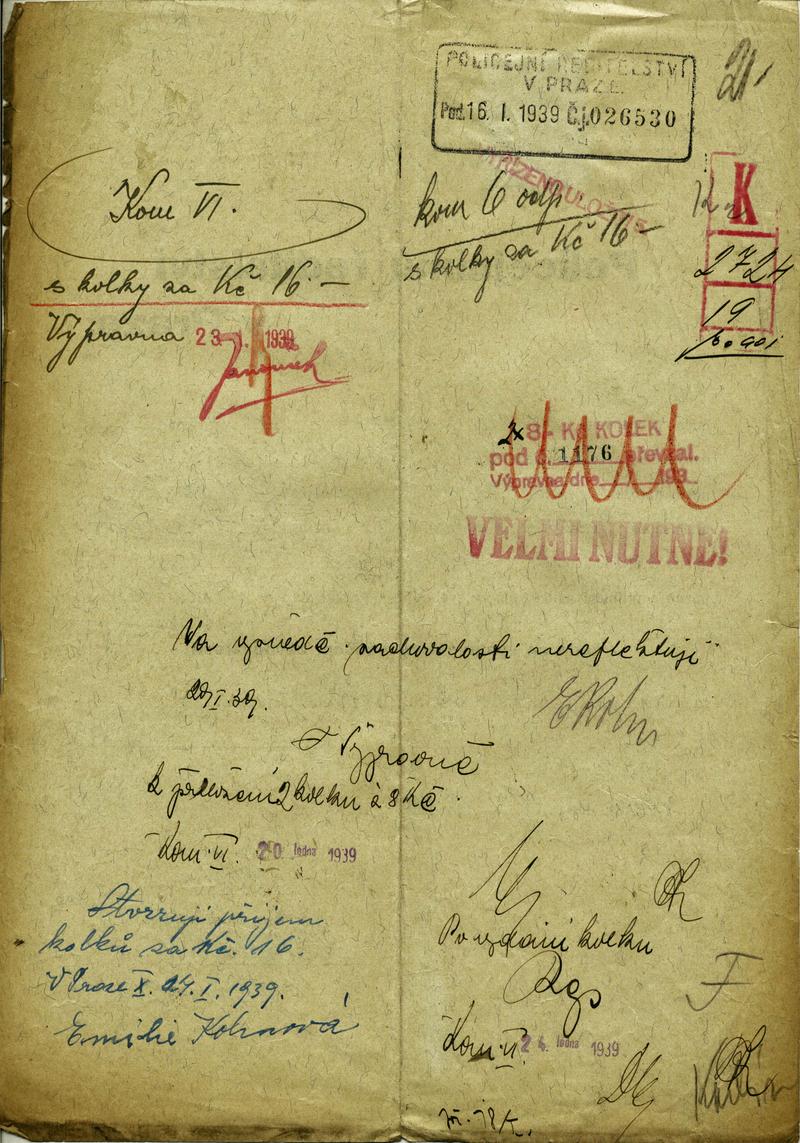 POLICEJNÍ ŘEDITELSTVÍ
V PRAZE
Pod. 16. I. 1939 Č.j. 026530
21
Kom VI.
s kolky za Kč 16.—
Výpravna 23. I. 1939
kom 6 odp.
s kolky za Kč 16—
K
2724
19
2x 8- Kč KOLEK
pod č. 1176 převzal.
Výpravna dne 193
VELMI NUTNÉ!
Na zprávě nereflektuji
20/I.39.
EKohn
Výpravně
k přiložení 2 kolku à 8 Kč.
Kom. VI. 20. ledna 1939
Stvrzuji příjem
kolků za Kč. 16.
V Praze X. 24. I. 1939.
Emilie Kohnová
Po vydání kolku
Kom. VI. 24. ledna 1939
F